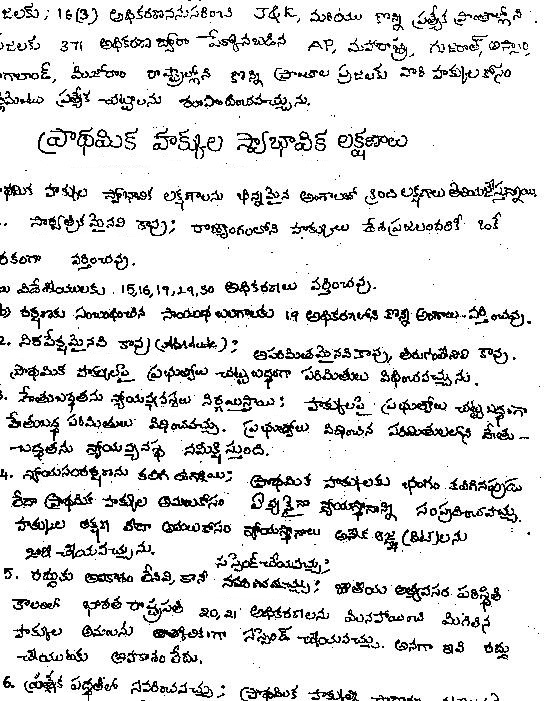 జలకు; 16(3) అధికరణననుసరించి J&K, మరియు కొన్ని ప్రత్యేక ప్రాంతాల్లోని
జలకు 371 అధికరణ ద్వారా పేర్కొనబడిన AP, మహారాష్ట్ర, గుజరాత్, అస్సాం,
గాలాండ్, మిజోరాం రాష్ట్రాల్లోని కొన్ని ప్రాంతాల ప్రజలకు వారి హక్కులకోసం
ప్రత్యేక చట్టాలను రూపొందించవచ్చును.
ప్రాథమిక హక్కుల స్వాభావిక లక్షణాలు
థమిక హక్కుల స్వాభావిక లక్షణాలను భిన్నమైన అంశాలతో క్రింది లక్షణాలు తెలియజేస్తున్నాయి
సార్వత్రికమైనవి కావు; రాజ్యాంగంలోని హక్కులు దేశప్రజలందరికీ ఒకే
రకంగా వర్తించవు.
విదేశీయులకు 15,16,19,29,30 అధికరణలు వర్తించవు.
b) రక్షణకు సంబంధించిన సాయుధ బలగాలకు 19 అధికరణలోని కొన్ని అంశాలు వర్తించవు.
2. నిరపేక్షమైనవి కావు (Absolute); అపరిమితమైనవి కావు, తిరుగులేనివి కావు.
ప్రాథమిక హక్కులపై ప్రభుత్వాలు చట్టబద్ధంగా పరిమితులు విధించవచ్చును.
3. హేతుబద్ధతను న్యాయవ్యవస్థలు నిర్ణయిస్తాయి; హక్కులపై ప్రభుత్వాలు చట్టబద్ధంగా
హేతుబద్ధ పరిమితులు విధించవచ్చు. ప్రభుత్వాలు విధించిన పరిమితులలోని హేతు-
బద్ధతను న్యాయవ్యవస్థ సమీక్షిస్తుంది.
4. న్యాయసంరక్షణను కలిగి ఉన్నాయి; ప్రాథమిక హక్కులకు భంగం కలిగినప్పుడు
లేదా ప్రాథమిక హక్కుల అమలుకోసం ఏ వ్యక్తైనా న్యాయస్థానాన్ని సంప్రదించవచ్చు.
హక్కుల రక్షణ లేదా అమలుకోసం న్యాయస్థానాలు అనేక రిట్లను
జారీ చేయవచ్చును.
సస్పెండ్ చేయవచ్చు;
5. రద్దుకు అవకాశం లేనివి, కానీ సవరించవచ్చు; జాతీయ అత్యవసర పరిస్థితి
కాలంలో భారత రాష్ట్రపతి 20,21 అధికరణలను మినహాయించి మిగిలిన
హక్కుల అమలును తాత్కాలికంగా సస్పెండ్ చేయవచ్చు. అనగా ఇవి రద్దు
చేయుటకు అవకాశం లేదు.
6. ప్రత్యేక పద్ధతిలో సవరించవచ్చు; ప్రాథమిక హక్కుల్ని